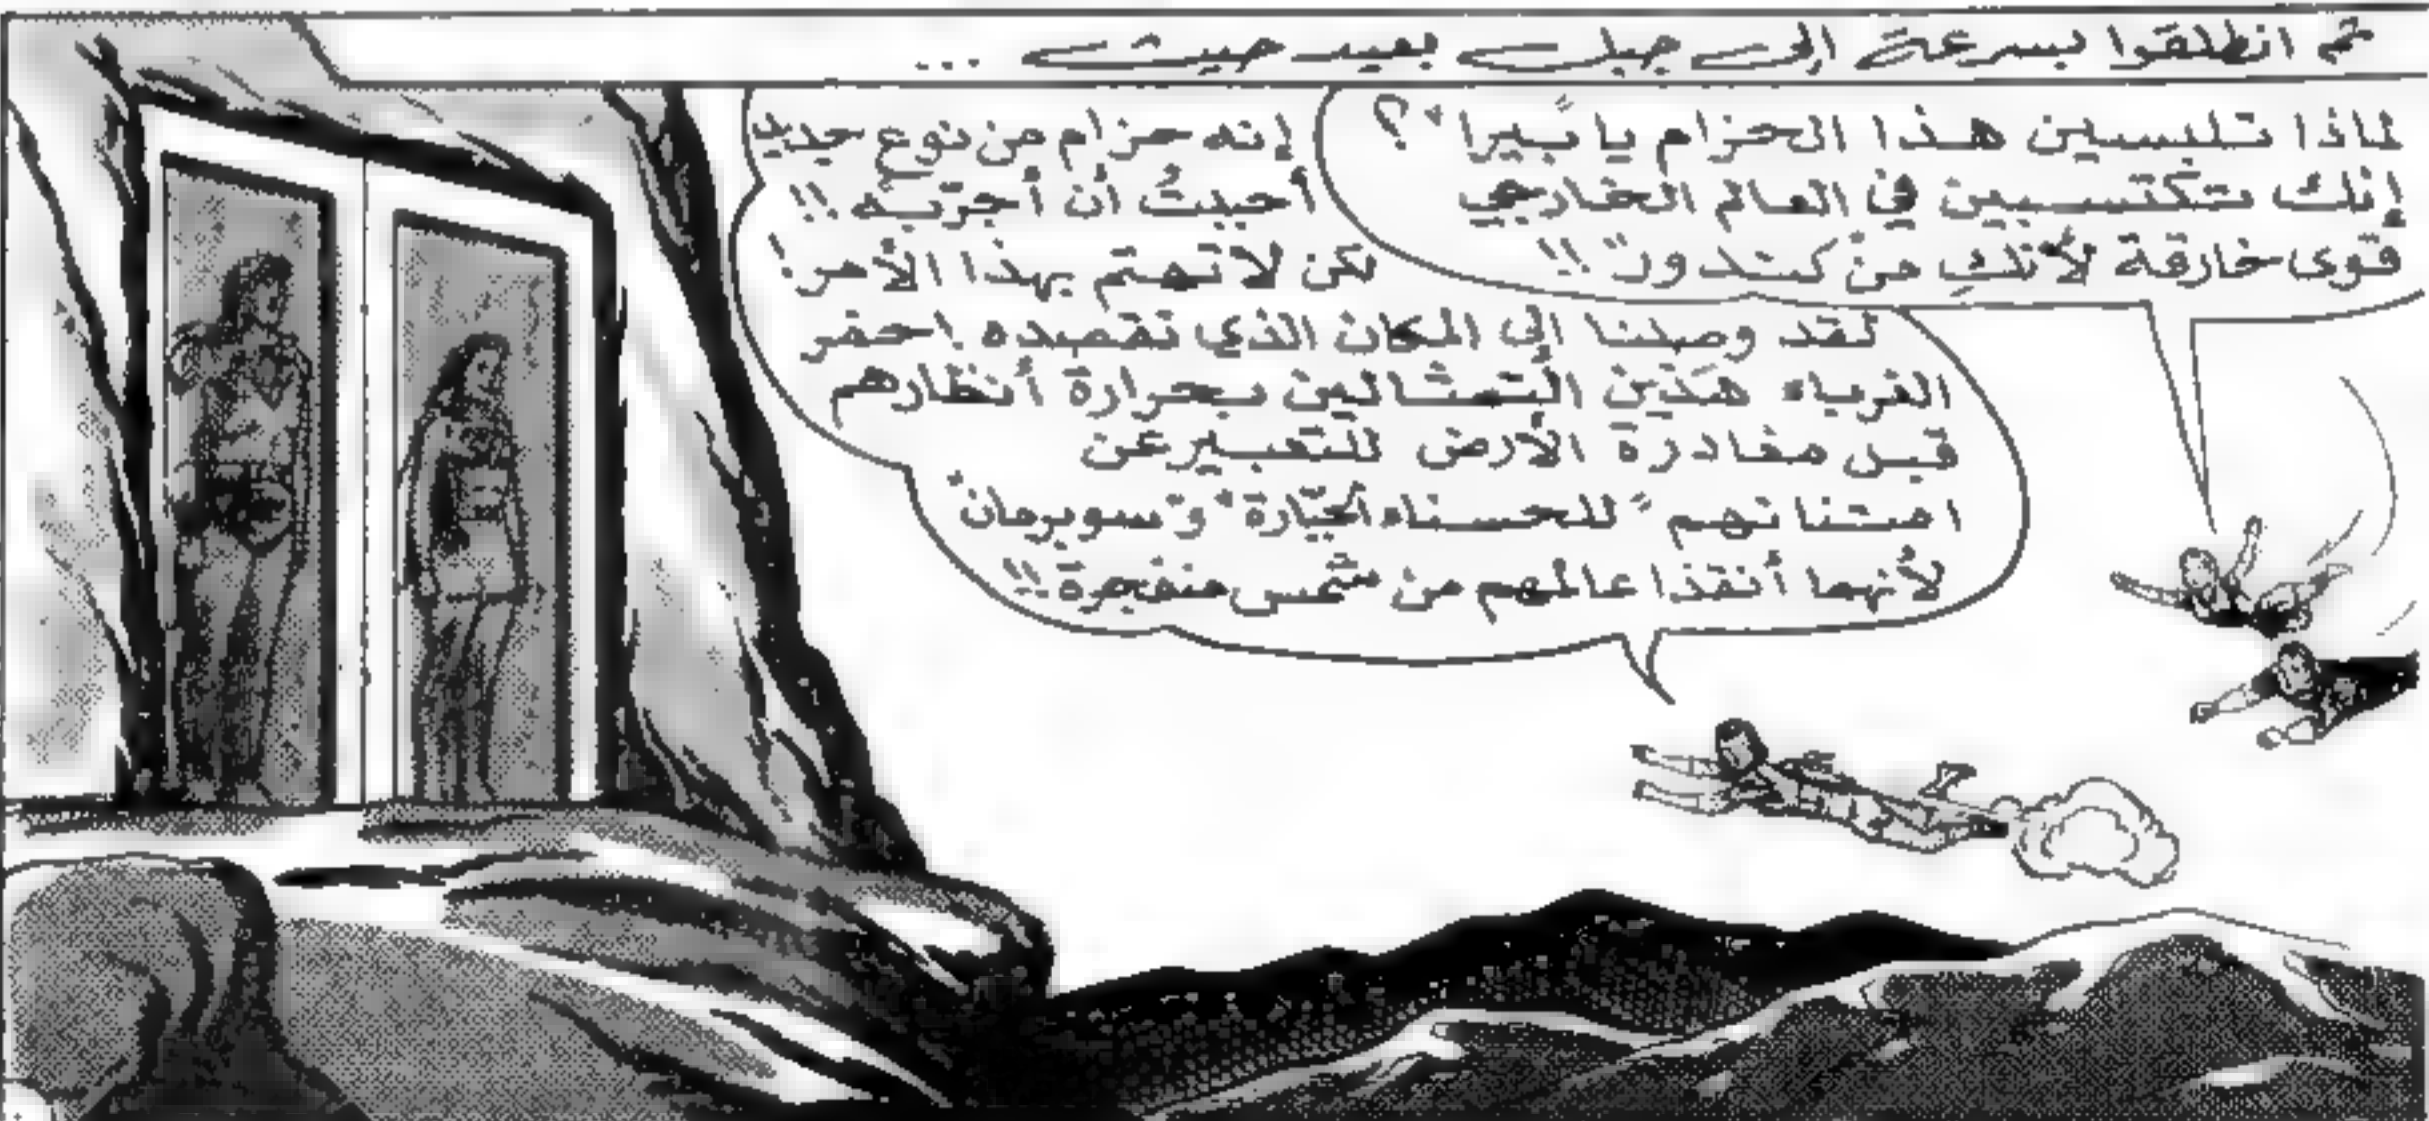 ثم انطلقوا بسرعة إلى جبل بعيد حيث ...
لماذا تلبسين هذا الحزام يا "بيرا"؟
إنك تكتسبين في العالم الخارجي
قوى خارقة لأنكِ من "كندور"!!
إنه حزام من نوع جديد
أحببتُ أن أجرّبه!!
لكن لا تهتم بهذا الأمر!
لقد وصلنا إلى المكان الذي تقصده. احفر
الغرباء هذين التمثالين بحرارة أنظارهم
قبل مغادرة الأرض للتعبير عن
امتنانهم "للحسناء الجبّارة" و"سوبرمان"
لأنهما أنقذا عالمهم من شمس منفجرة!!